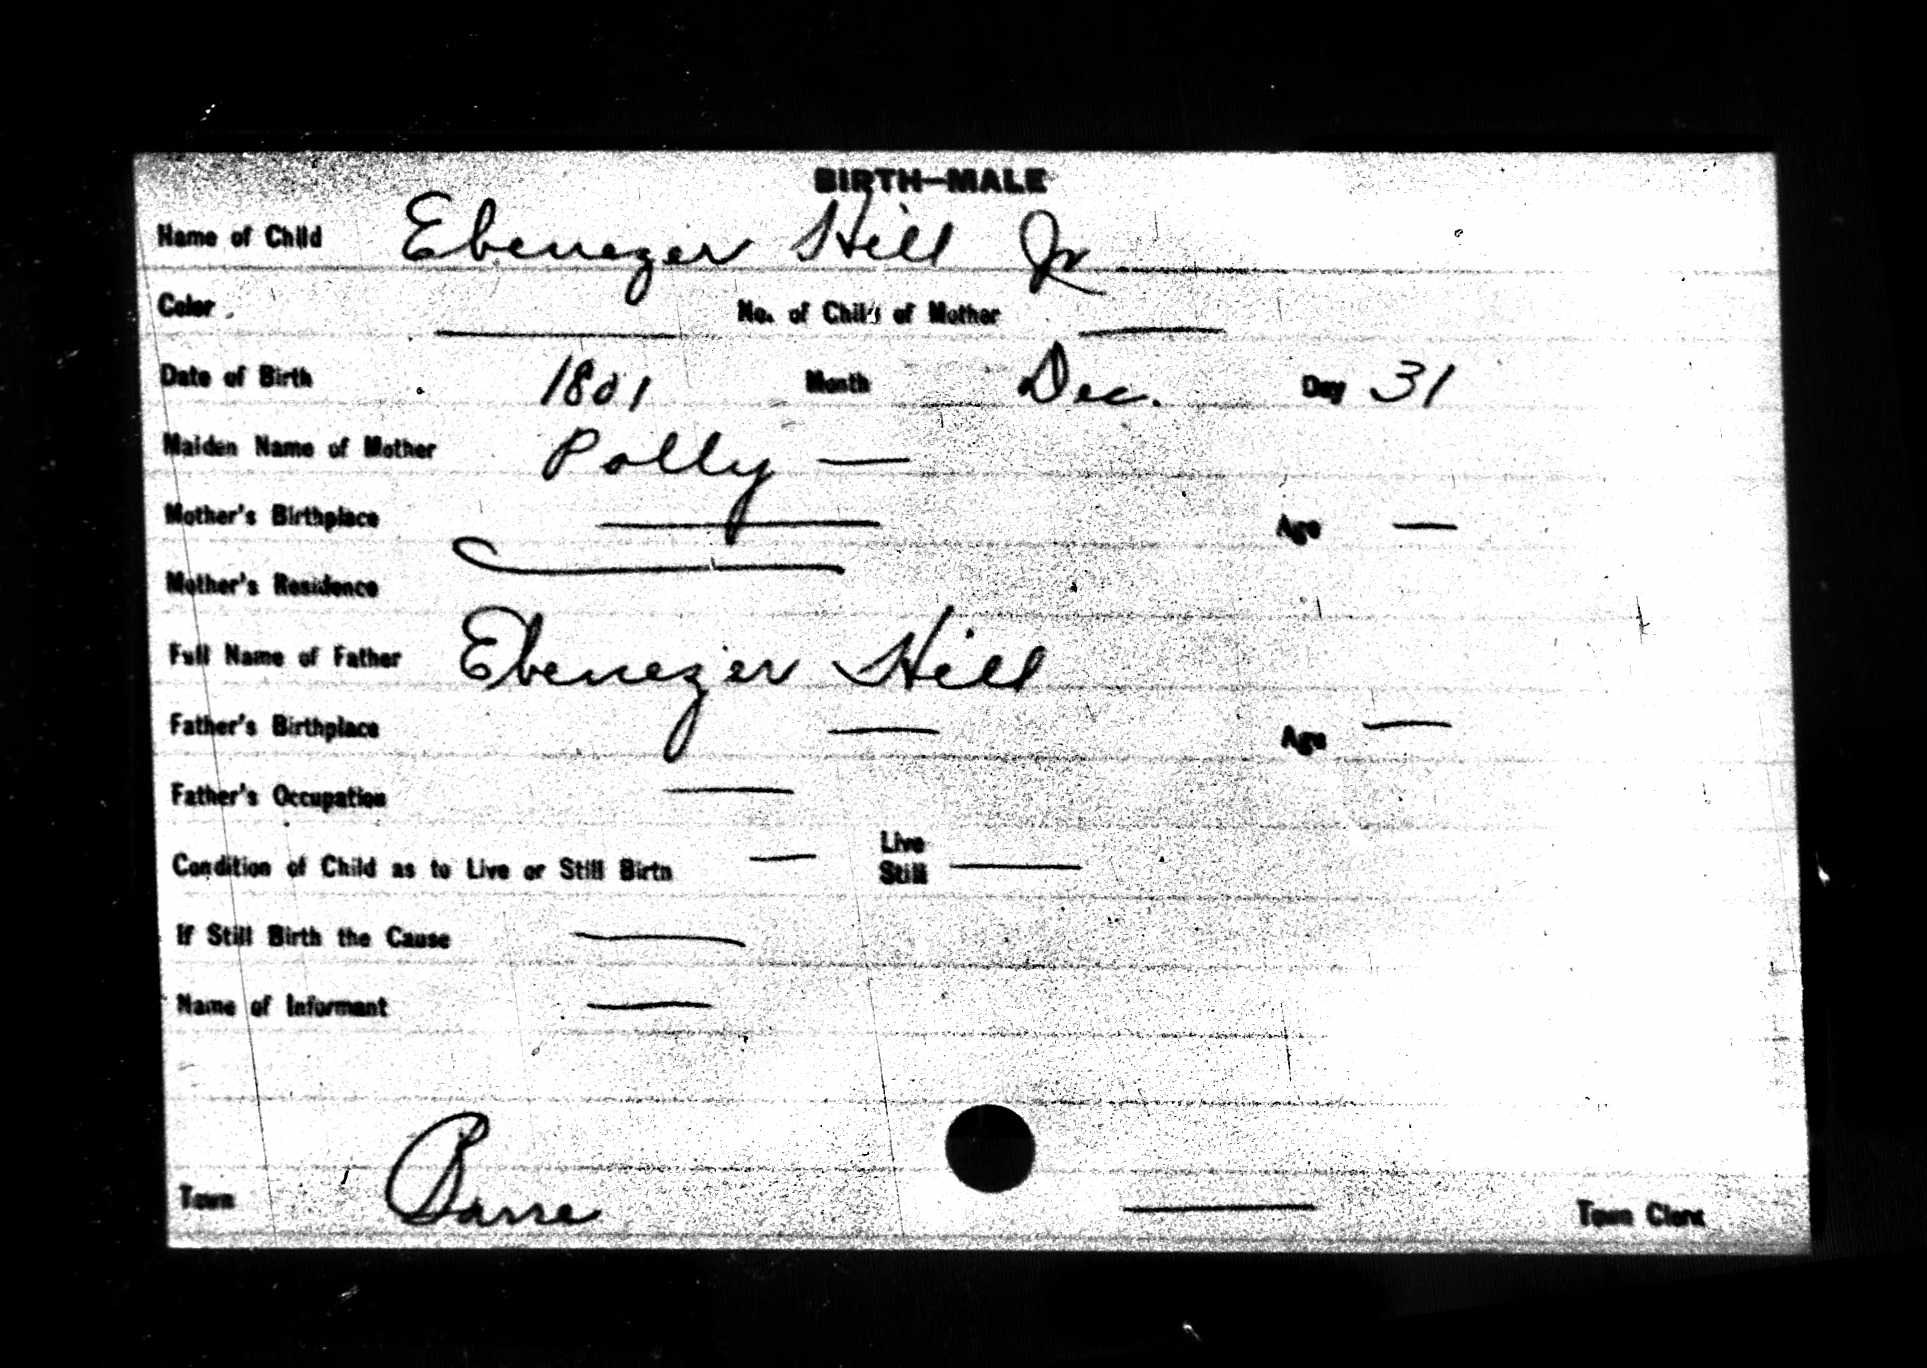 BIRTH—MALE
Name of Child Ebenezer Hill Jr
Color No. of Child of Mother
Date of Birth 1801 Month Dec. Day 31
Maiden Name of Mother Polly —
Mother's Birthplace — Age —
Mother's Residence —
Full Name of Father Ebenezer Hill
Father's Birthplace — Age —
Father's Occupation —
Condition of Child as to Live or Still Birth — Live
Still —
If Still Birth the Cause —
Name of Informant —
Town Barre — Town Clerk